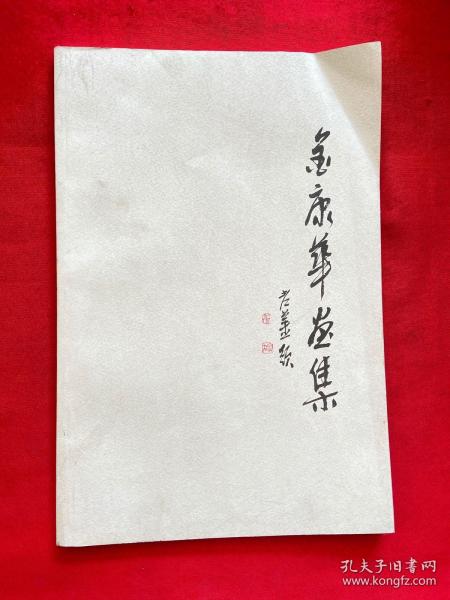 金康华画集
老董题
孔夫子旧书网
www.kongfz.com